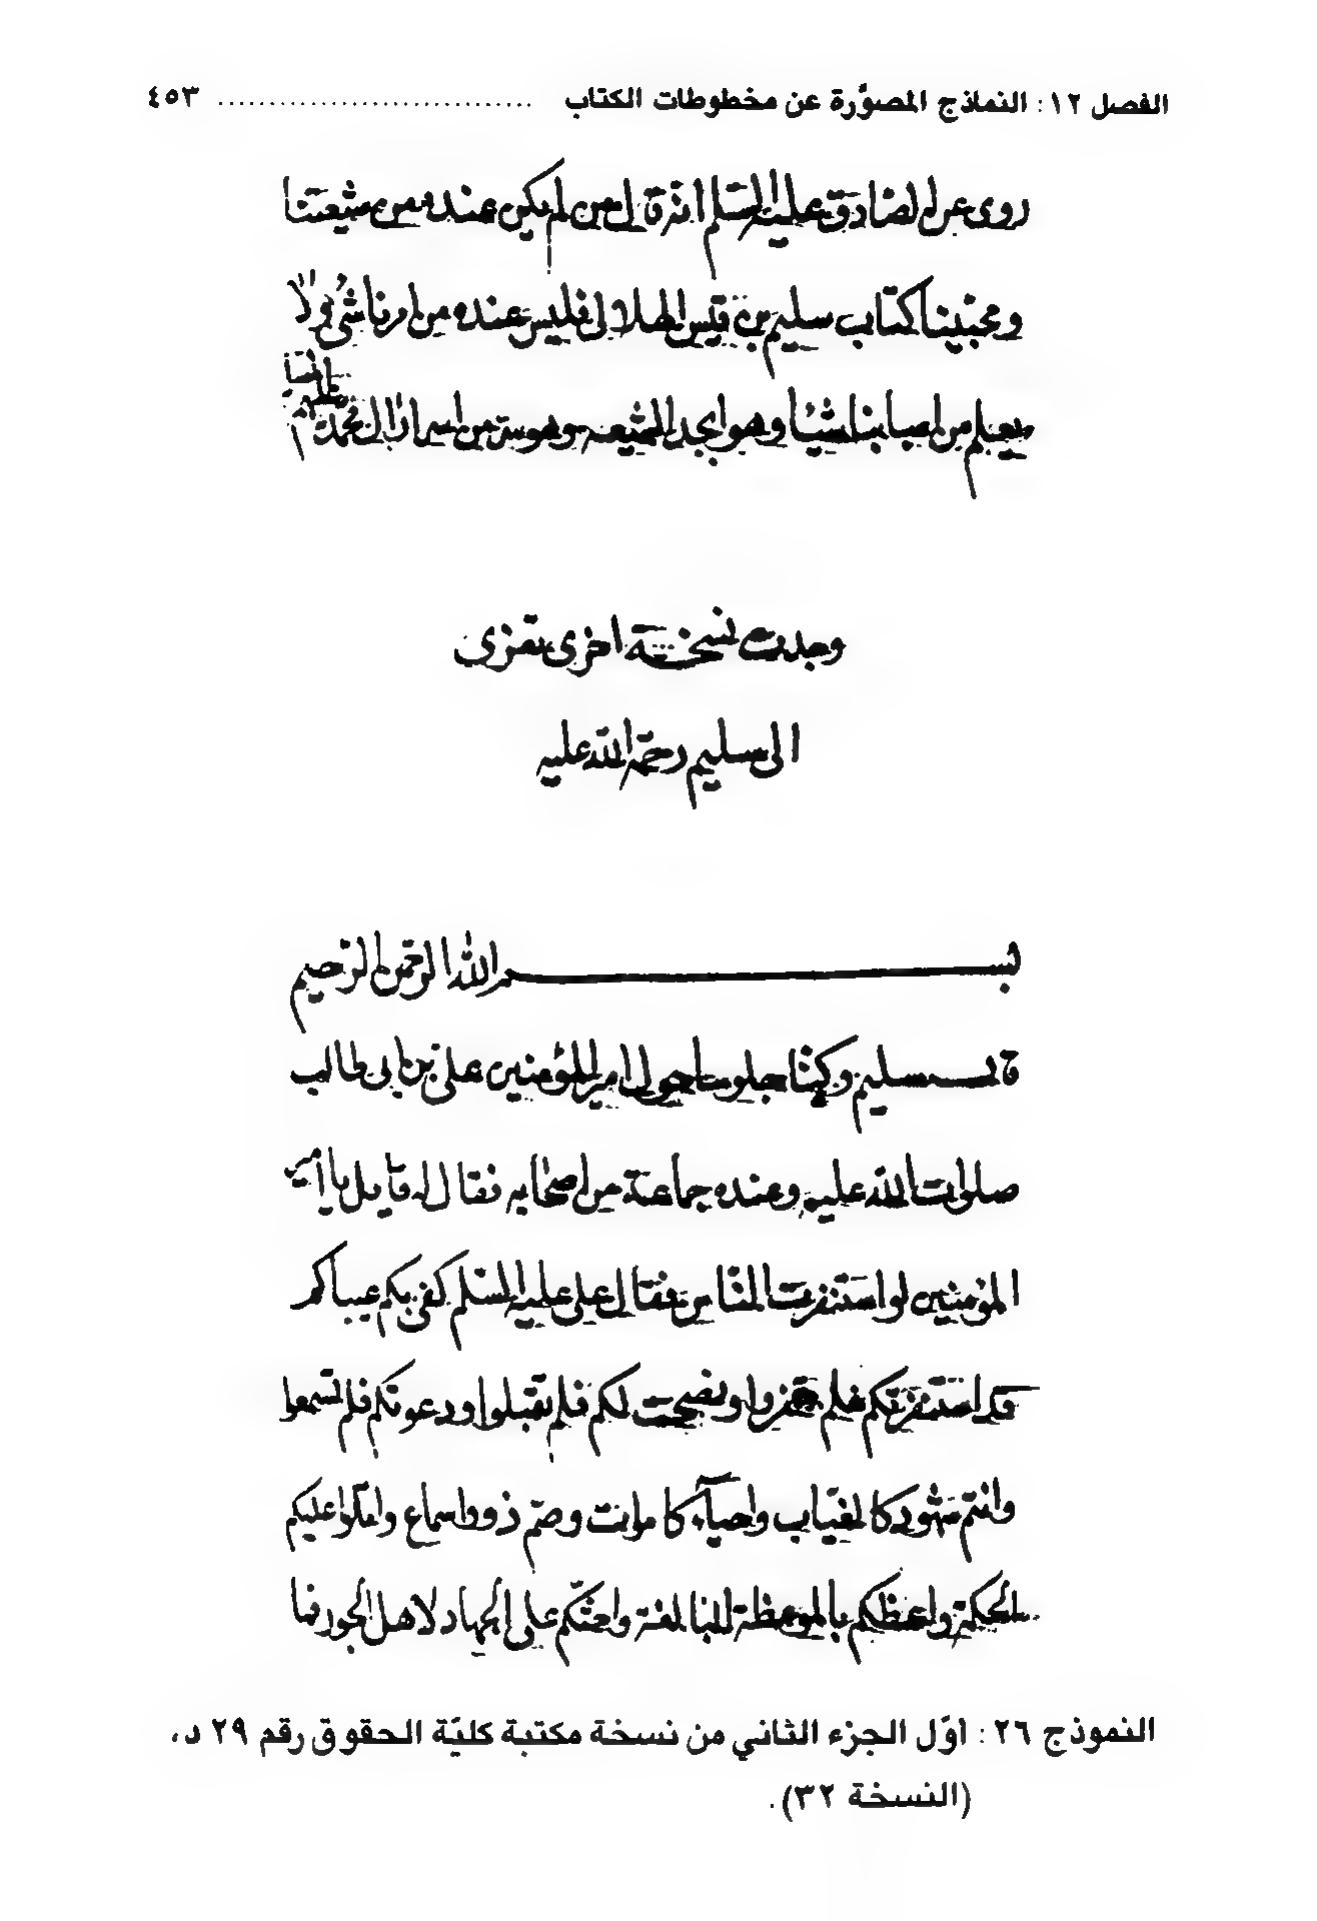 الفصل ١٢: النماذج المصوَّرة عن مخطوطات الكتاب .............................. ٤٥٣
روى عن الصادق عليه السلم انه قال من لم يكن عنده من شيعتنا
ومحبينا كتاب سليم بن قيس الهلالى فليس عنده من امرنا شئ ولا
يعلم من اسبابنا شيئا وهو ابجد الشيعه وهو سر من اسرار آل محمد عليه
وجدت نسخة اخرى تعزى
الى سليم رحمة الله عليه
بسم الله الرحمن الرحيم
قال سليم وكنا جلوسا حول امير المؤمنين على بن ابى طالب
صلوات الله عليه وعنده جماعة من اصحابه فقال له قايل يا امير
المؤمنين لو استنفرت الناس فقال على عليه السلم كفى بكم عيبا كم
قد استنفرتكم فلم تنفروا ونصحت لكم فلم تقبلوا ودعوتكم فلم تسمعوا
وانتم شهود كالغياب واحياء كاموات وصم ذوو اسماع واتلوا عليكم
الحكمة واعظكم بالموعظة البالغة واحثكم على الجهاد لاهل الجور فما
النموذج ٢٦: أوّل الجزء الثاني من نسخة مكتبة كليّة الحقوق رقم ٢٩ د،
(النسخة ٣٢).